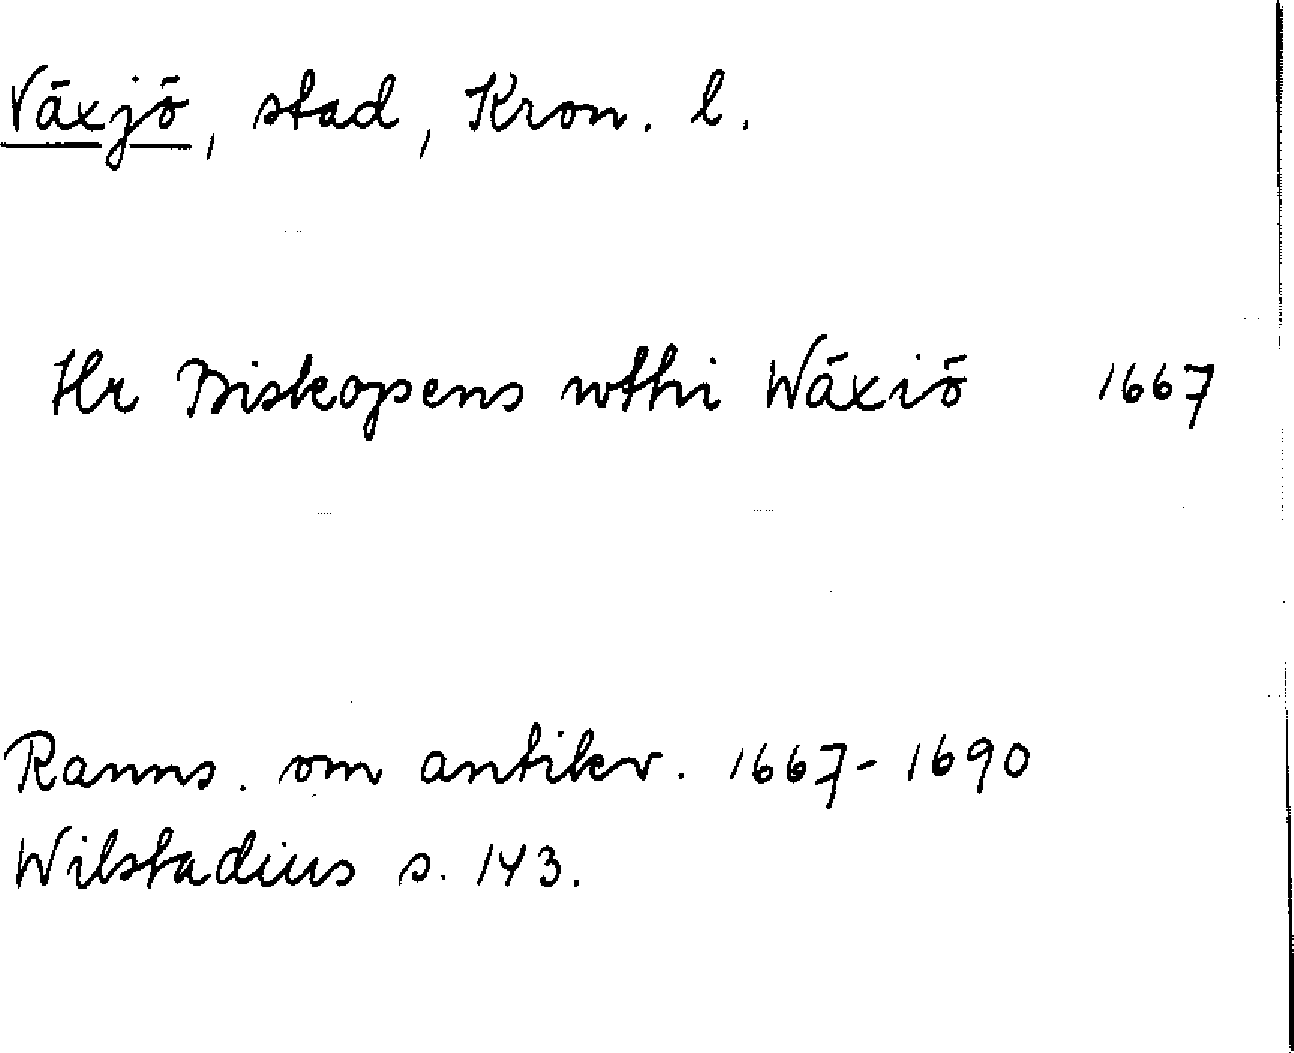 Växjö, stad, Kron. l.
Hr Biskopens wthi Wäxiö 1667
Ranns. om antikv. 1667-1690
Wilstadius s. 143.